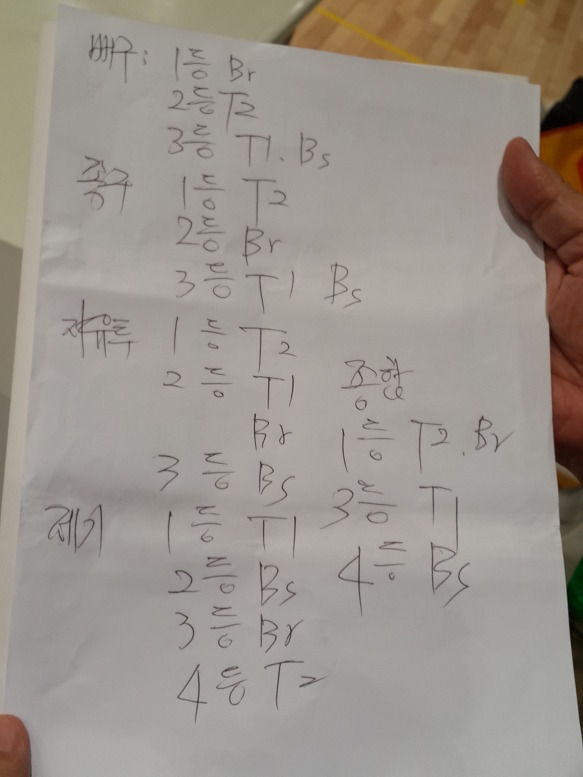 배구: 1등 Br
2등 T2
3등 T1. Bs
족구 1등 T2
2등 Br
3등 T1 Bs
자유투 1등 T2
2등 T1
Br
3등 Bs
제기 1등 T1
2등 Bs
3등 Br
4등 T2
종합
1등 T2. Br
3등 T1
4등 Bs